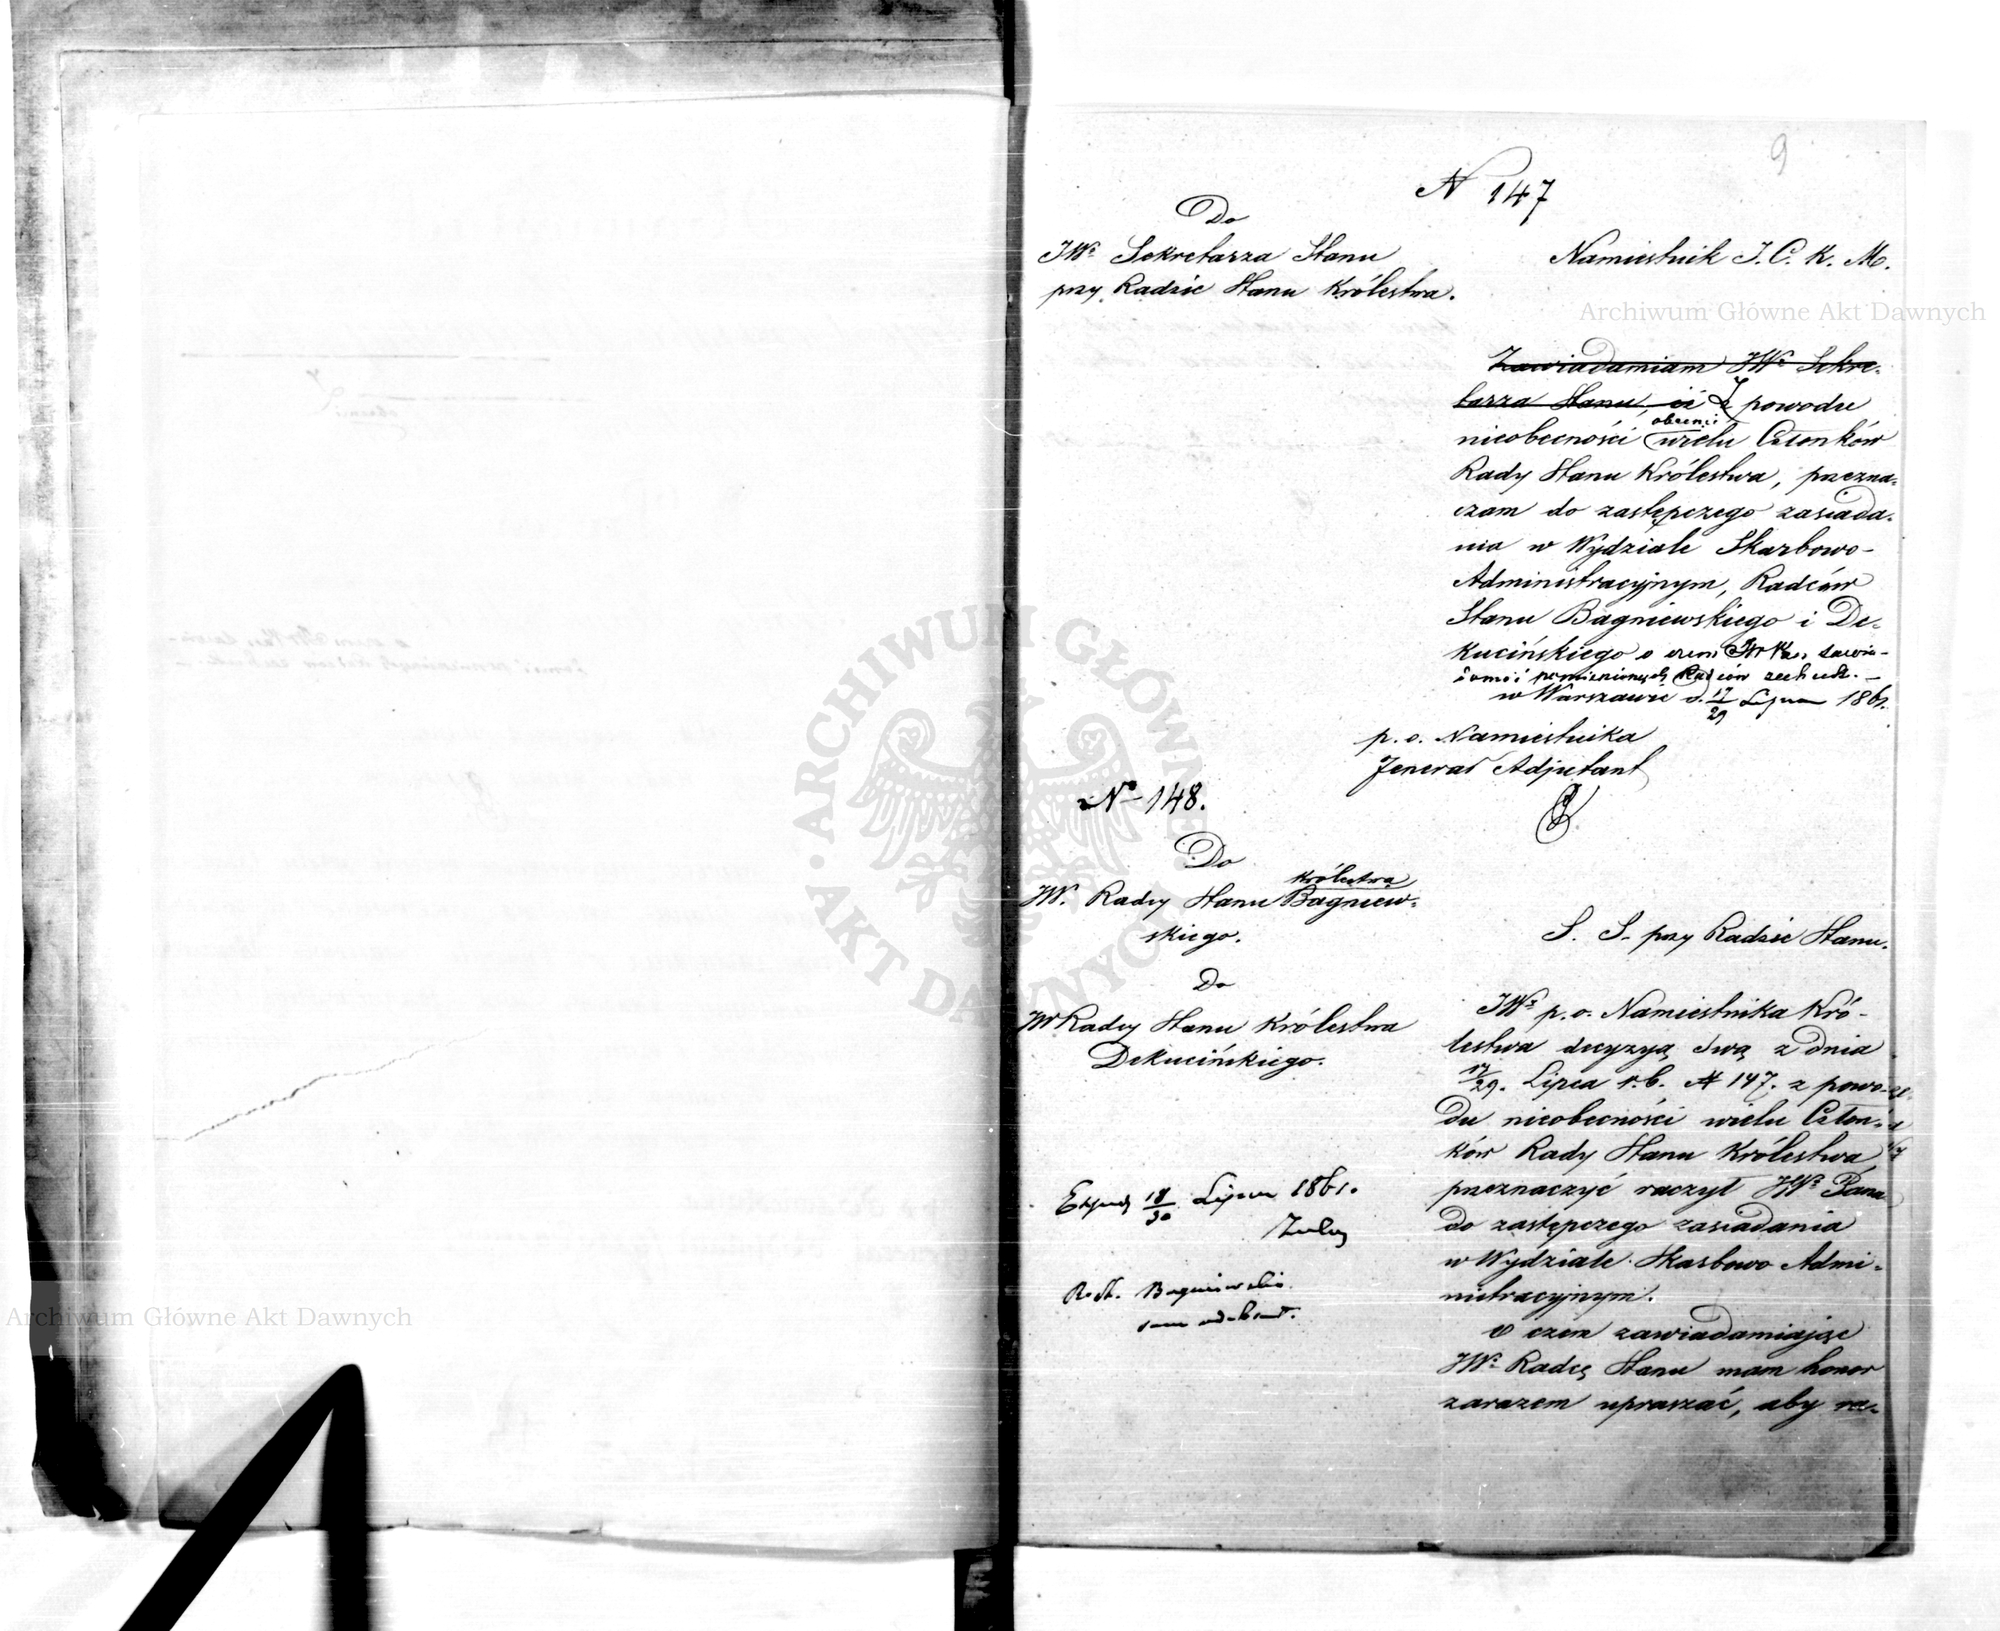 9
N 147
Do
JWo Sekretarza Stanu
przy Radzie Stanu Królestwa.
Namiestnik J. C. K. M.
Zawiadamiam JWo Sekre-
tarza Stanu, iż Z powodu
nieobecności obecnie wielu Członków
Rady Stanu Królestwa, przezna-
czam do zastępczego zasiada-
nia w Wydziale Skarbowo-
Administracyjnym, Radców
Stanu Bagniewskiego i De-
kucińskiego o czem JW Pan zawia-
domić pomienionych Radców zechce. –
w Warszawie d. 17/29 Lipca 1861.
p. o. Namiestnika
Jenerał Adjutant
No 148.
Do
JW. Radcy Stanu Królestwa Bagniew-
skiego.
Do
JW Radcy Stanu Królestwa
Dekucińskiego.
Exped 18/30 Lipca 1861.
R. St. Bagniewski
sam odebrał.
S. S. przy Radzie Stanu.
JWy p. o. Namiestnika Kró-
lestwa decyzyą swą z dnia
17/29. Lipca r. b. N 147. z powo-
du nieobecności wielu Człon-
ków Rady Stanu Królestwa
przeznaczyć raczył JWo Pana
do zastępczego zasiadania
w Wydziale Skarbowo Admi-
nistracyjnym.
O czem zawiadamiając
JWo Radcę Stanu mam honor
zarazem upraszać, aby ra-
Archiwum Główne Akt Dawnych
Archiwum Główne Akt Dawnych
ARCHIWUM GŁÓWNE · AKT DAWNYCH